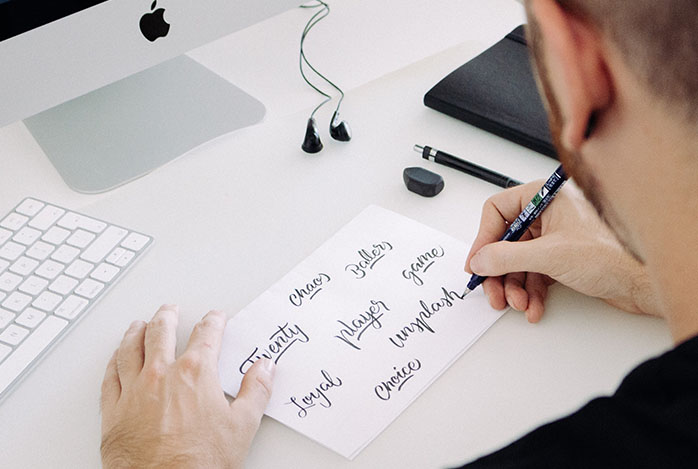 chaos Ballers game
Twenty player unsplash
Loyal choice